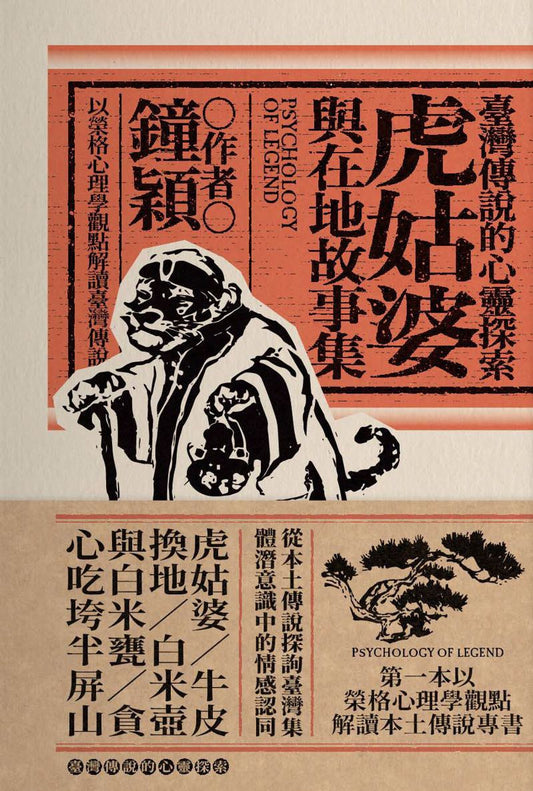 臺灣傳說的心靈探索
虎姑婆
與在地故事集
PSYCHOLOGY
OF LEGEND
○作者○
鐘穎
以榮格心理學觀點解讀臺灣傳說
PSYCHOLOGY OF LEGEND
第一本以
榮格心理學觀點
解讀本土傳說專書
從本土傳說探詢臺灣集
體潛意識中的情感認同
虎姑婆／牛皮
換地／白米壺
與白米甕／貪
心吃垮半屏山
臺灣傳說的心靈探索